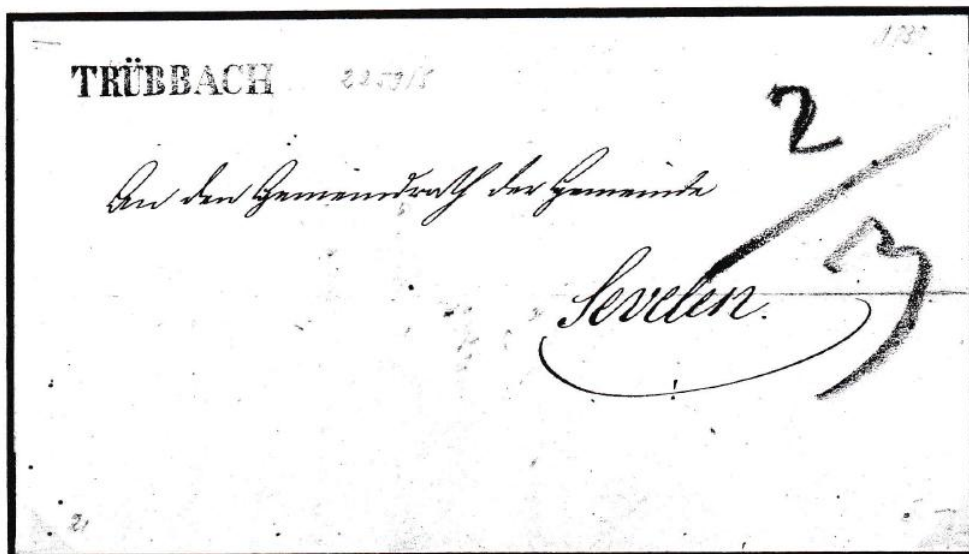 TRÜBBACH
2
An den Gemeindrath der Gemeinde
3
Sevelen.